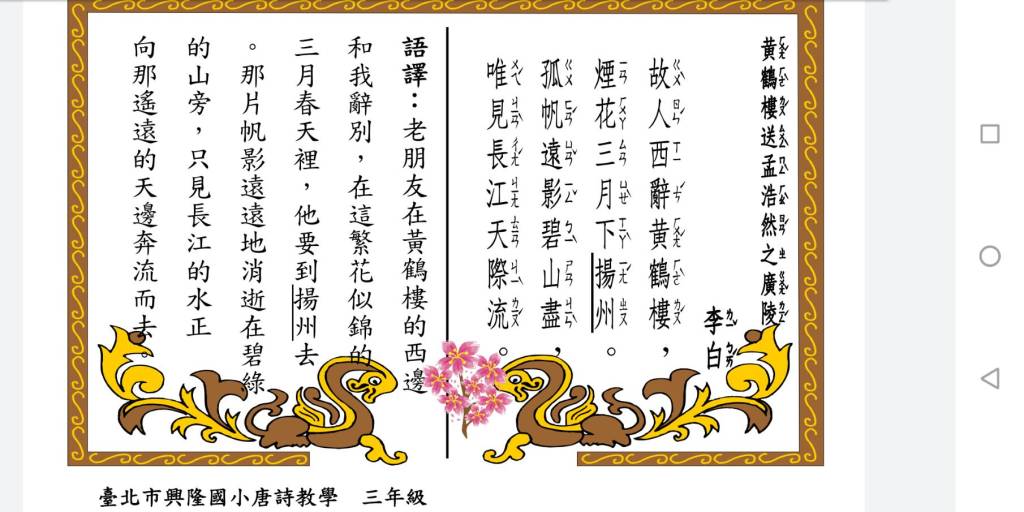 黃鶴樓送孟浩然之廣陵
李白
故人西辭黃鶴樓，
煙花三月下揚州。
孤帆遠影碧山盡，
唯見長江天際流。
語譯：老朋友在黃鶴樓的西邊
和我辭別，在這繁花似錦的
三月春天裡，他要到揚州去
。那片帆影遠遠地消逝在碧綠
的山旁，只見長江的水正
向那遙遠的天邊奔流而去。
臺北市興隆國小唐詩教學　三年級